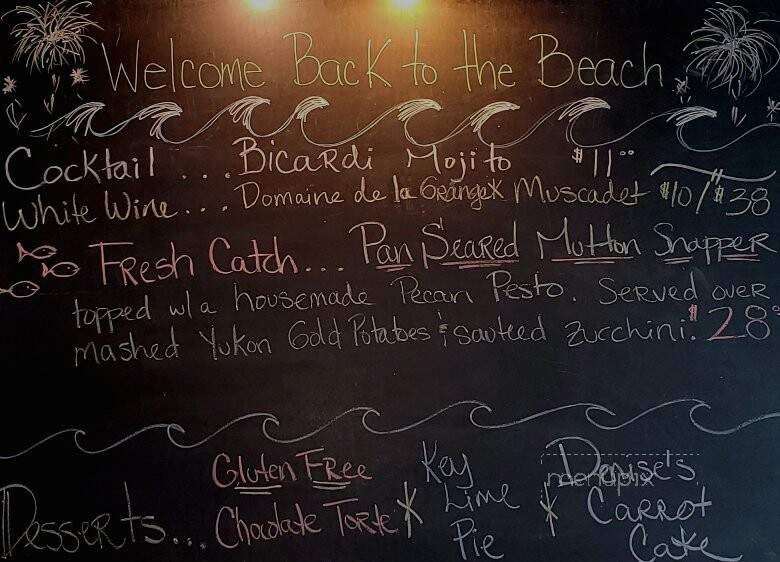 Welcome Back to the Beach
Cocktail ... Bicardi Mojito $11.00
White Wine... Domaine de la Grangex Muscadet $10/$38
Fresh Catch... Pan Seared Mutton Snapper
topped w/a housemade Pecan Pesto. Served over
mashed Yukon Gold Potatoes & sauteed zucchini. $28
Desserts...
Gluten Free
Chocolate Torte
Key
Lime
Pie
Denise's
Carrot
Cake
menupix